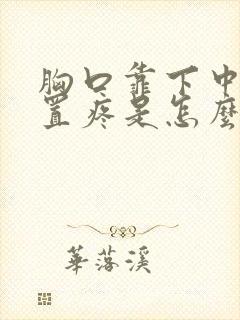 胸口靠下中
置疼是怎麼
華落溪